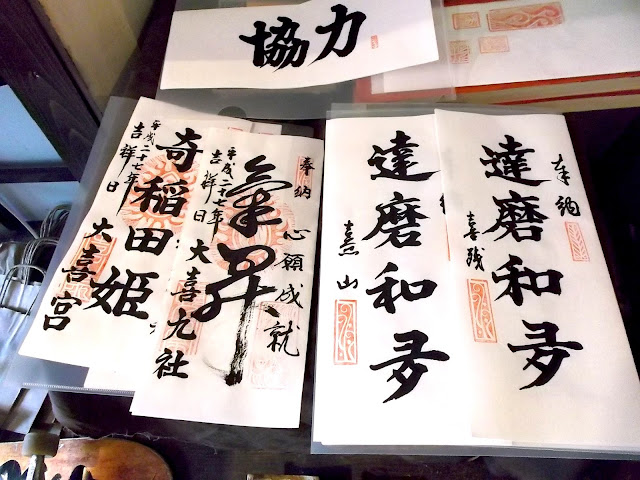 協力
奉納
達磨和
達磨和
山
奉納
心願成就
氣昇
平成二十七年
吉祥日
大喜九社
奇稲田姫
平成二十七年
吉祥日
大喜宮